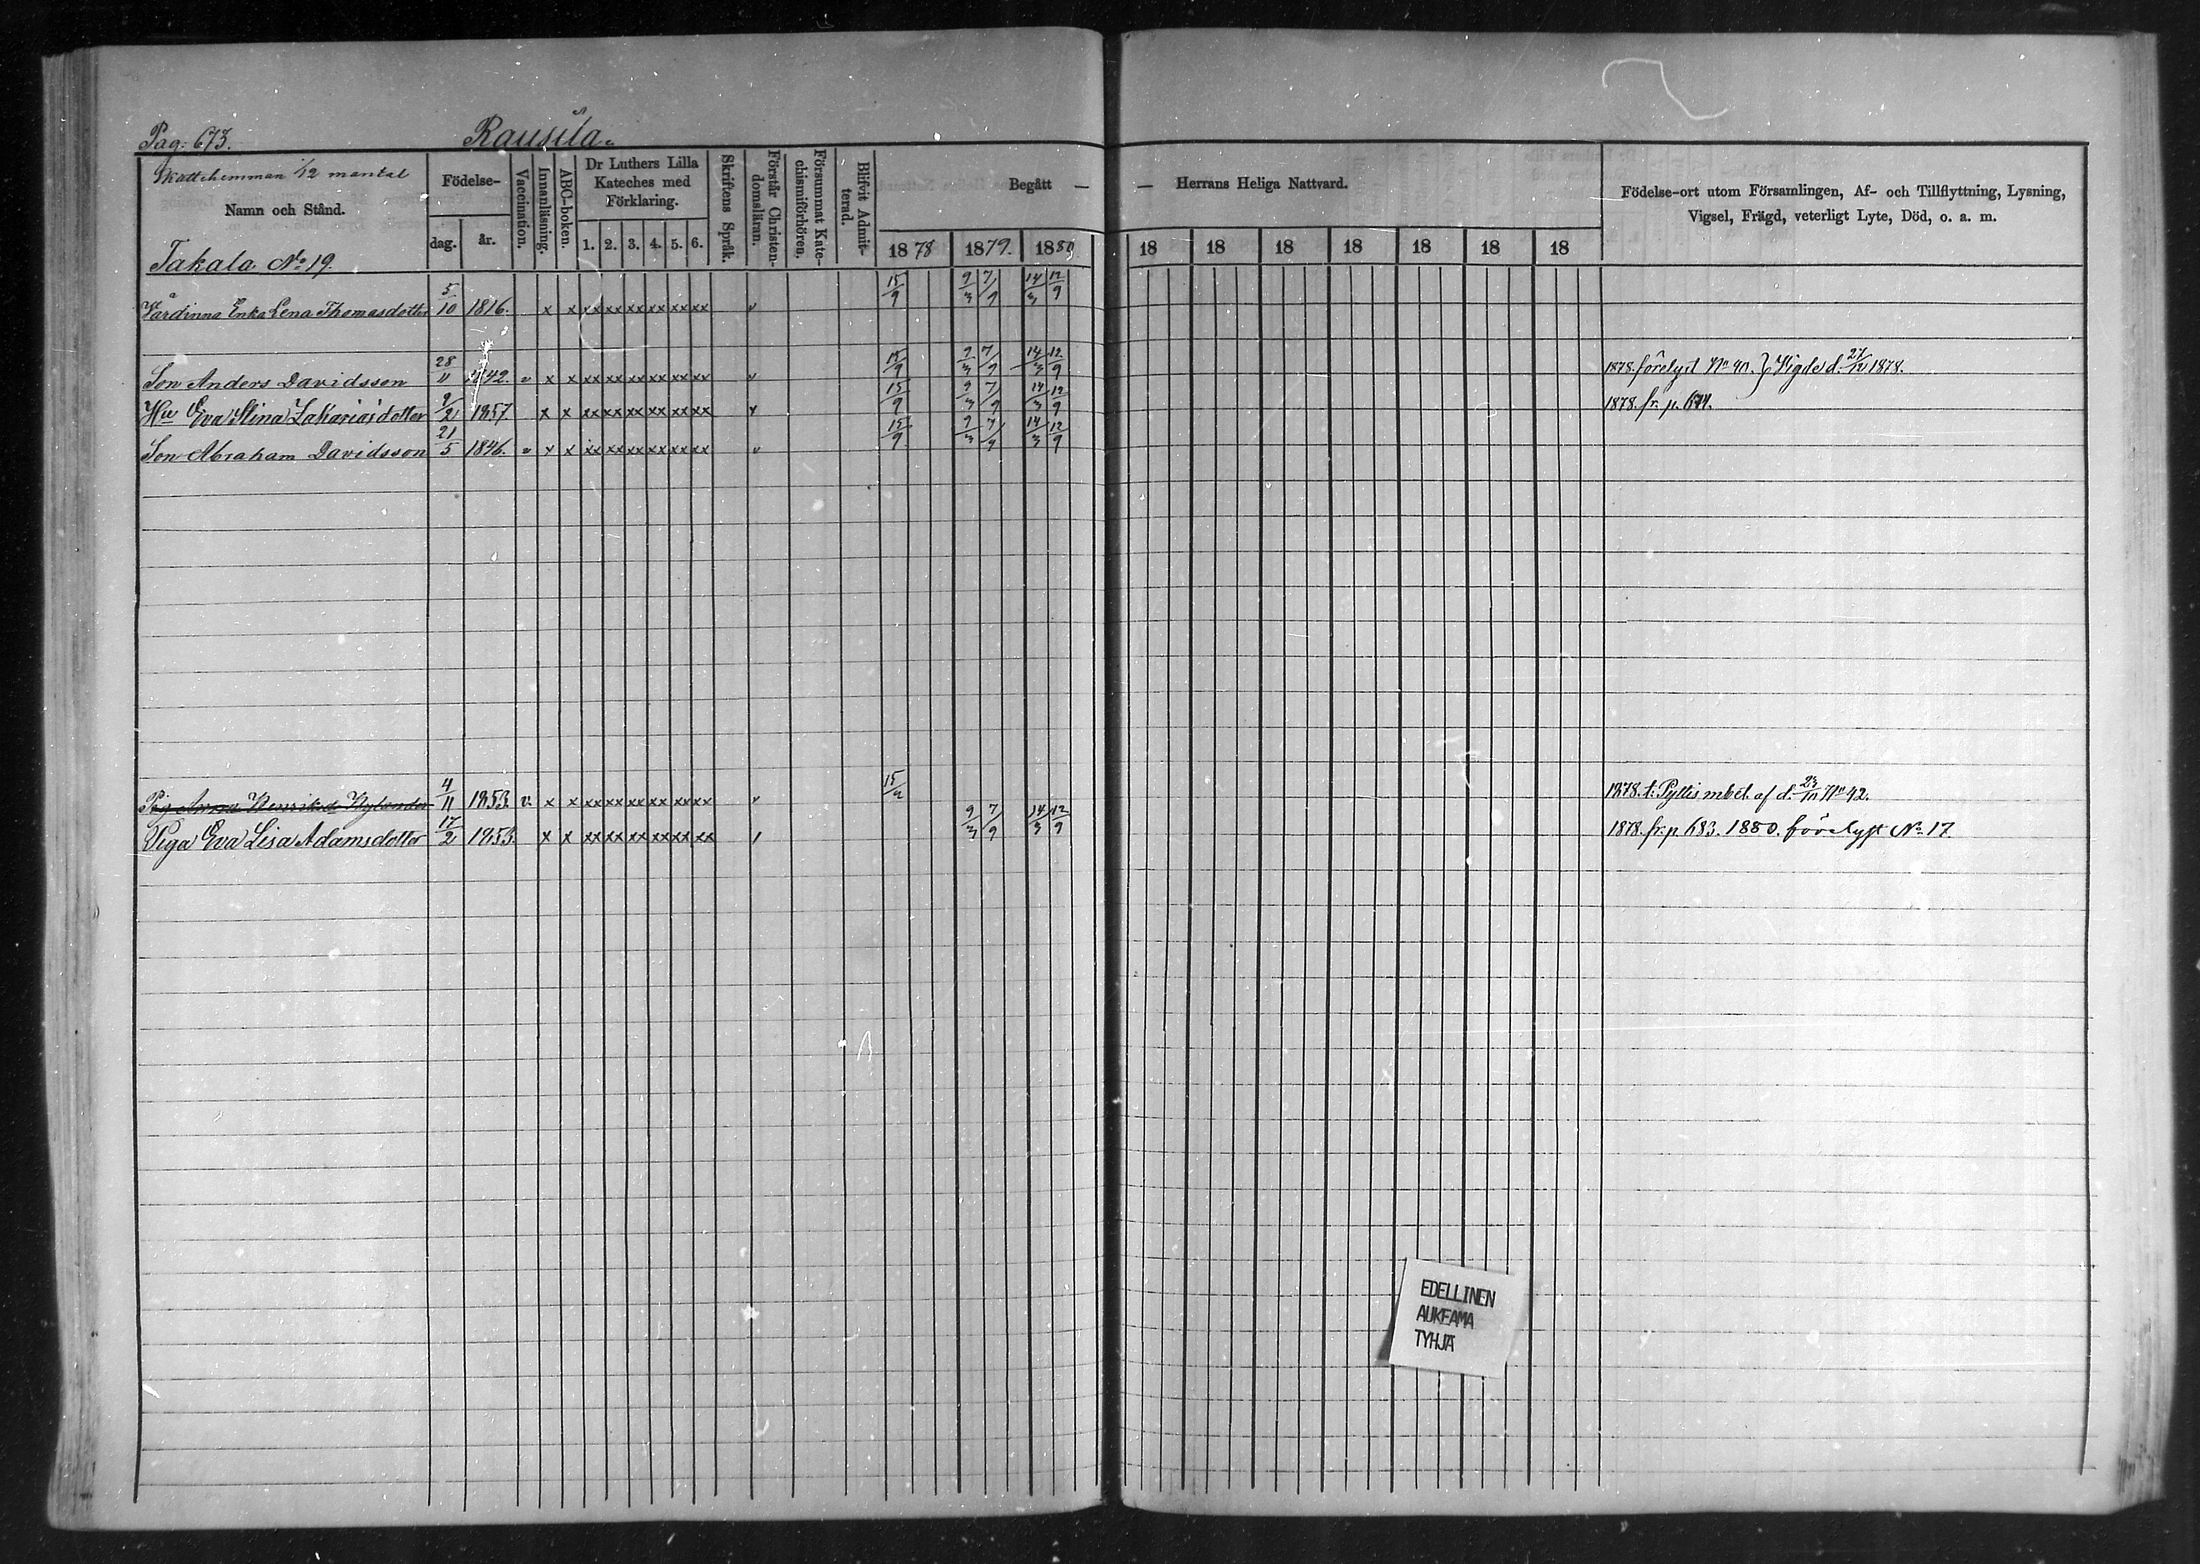 Pag: 673. Rausila.
Skattehemman 1/12 mantal
Namn och Stånd.
Takala No 19.
Födelse-
dag. år.
Vaccination.
Innanläsning.
ABC-boken.
Dr Luthers Lilla
Kateches med
Förklaring.
1. 2. 3. 4. 5. 6.
Skriftens Språk.
Förstår Christen-
domsläran.
Försummat Kate-
chismiförhören.
Blifvit Admit-
terad.
Begått — — Herrans Heliga Nattvard.
1878 1879. 1880 18 18 18 18 18 18 18
Födelse-ort utom Församlingen, Af- och Tillflyttning, Lysning,
Vigsel, Frägd, veterligt Lyte, Död, o. a. m.
Värdinna Enka Lena Thomasdotter 5/10 1816. x x xx xx xx xx xx xx v 15/9 9/3 7/9 14/3 12/9
Son Anders Davidsson 28/11 1842. v x x xx xx xx xx xx xx v 15/9 9/3 7/9 14/3 12/9 1878. förelyst No 90. } Vigde d. 27/12 1878.
Hu Eva Stina Zakariasdotter 9/2 1857. x x xx xx xx xx xx xx v 15/9 9/3 7/9 14/3 12/9 1878. fr. p. 674.
Son Abraham Davidsson 21/5 1846. v x x xx xx xx xx xx xx v 15/9 9/3 7/9 14/3 12/9
Pig. Anna Henriksd. Nylander 4/11 1853. v. x x xx xx xx xx xx xx v 15/9 1878. t. Pyttis m bet. af d. 23/10 No 42.
Piga Eva Lisa Adamsdotter 17/2 1853. x x xx xx xx xx xx xx 9/3 7/9 14/3 12/9 1878. fr. p 683. 1880. förelyst No 17.
EDELLINEN
AUKEAMA
TYHJÄ